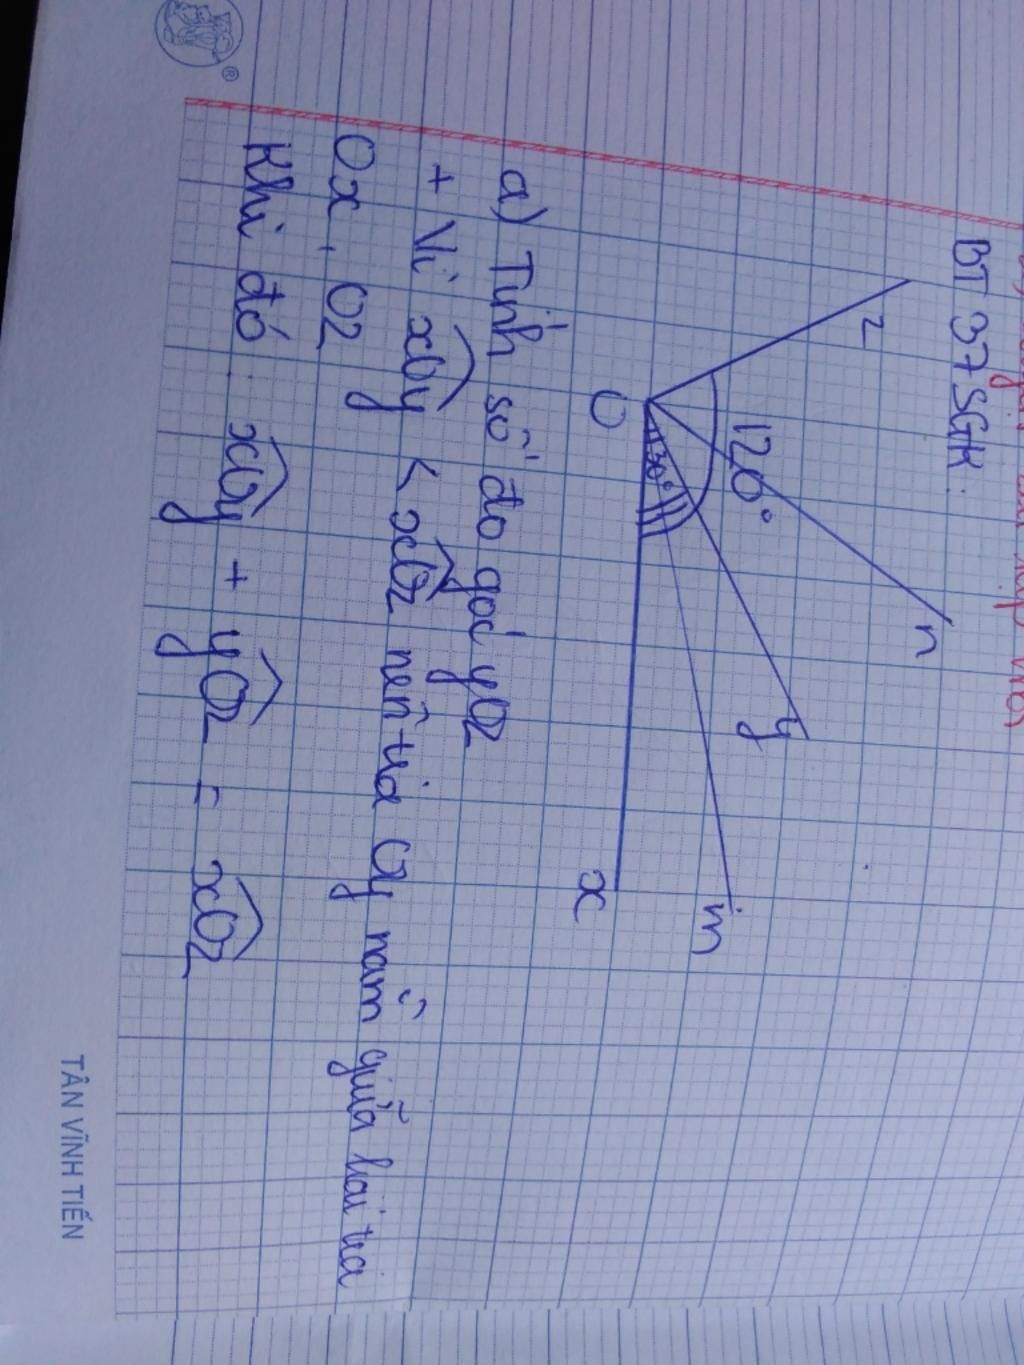 BT 37 SGK:
z
n
120°
y
30°
m
O
x
a) Tính số đo góc yOz
+ Vì xOy < xOz nên tia Oy nằm giữa hai tia
Ox, Oz
Khi đó: xOy + yOz = xOz
®
TÂN VĨNH TIẾN